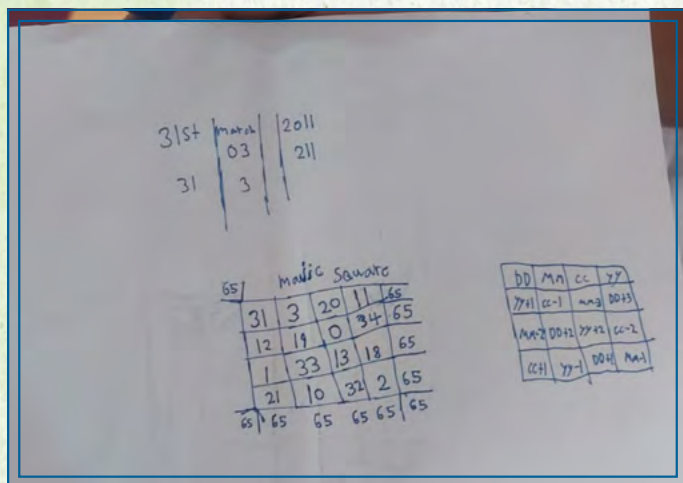 31st march 2011
03 211
31 3
65 Majic Square
31 3 20 11 65
12 19 0 34 65
1 33 13 18 65
21 10 32 2 65
65 65 65 65 65 65
DD Mm CC YY
YY+1 CC-1 mm-3 DD+3
Mm-2 DD+2 YY+2 CC-2
CC+1 YY-1 DD+1 Mm-1